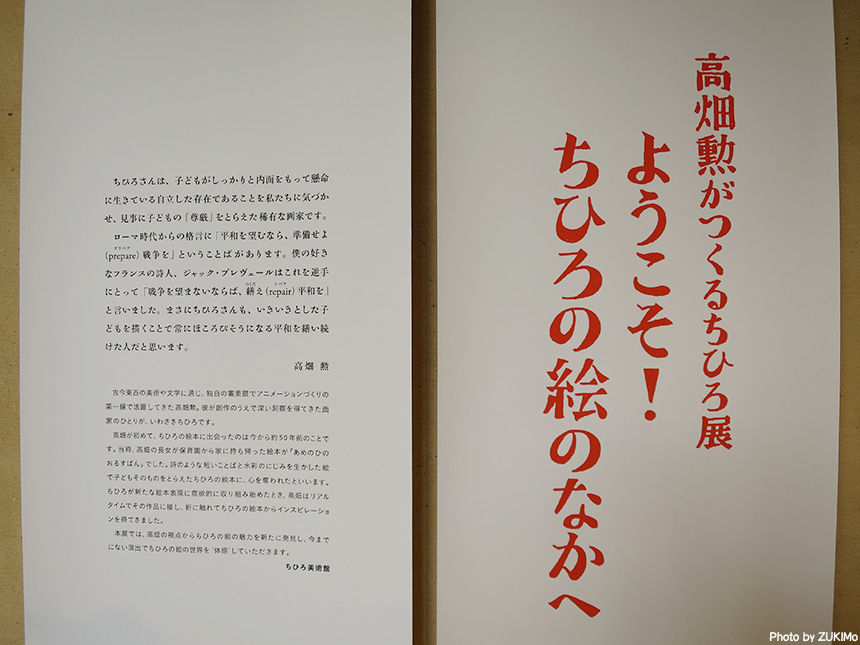 ちひろさんは、子どもがしっかりと内面をもって懸命
に生きている自立した存在であることを私たちに気づか
せ、見事に子どもの「尊厳」をとらえた稀有な画家です。
ローマ時代からの格言に「平和を望むなら、準備せよ
プリペア
(prepare)戦争を」ということばがあります。僕の好き
なフランスの詩人、ジャック・プレヴェールはこれを逆手
つくろ リペア
にとって「戦争を望まないならば、繕え(repair)平和を」
と言いました。まさにちひろさんも、いきいきとした子
どもを描くことで常にほころびそうになる平和を繕い続
けた人だと思います。
高畑 勲
古今東西の美術や文学に通じ、独自の審美眼でアニメーションづくりの
第一線で活躍してきた高畑勲。彼が創作のうえで深い洞察を得てきた画
家のひとりが、いわさきちひろです。
高畑が初めて、ちひろの絵本に出会ったのは今から約50年前のことで
す。当時、高畑の長女が保育園から家に持ち帰った絵本が「あめのひの
おるすばん」でした。詩のような短いことばと水彩のにじみを生かした絵
で子どもそのものをとらえたちひろの絵本に、心を奪われたといいます。
ちひろが新たな絵本表現に意欲的に取り組み始めたとき、高畑はリアル
タイムでその作品に接し、折に触れてちひろの絵本からインスピレーショ
ンを得てきました。
本展では、高畑の視点からちひろの絵の魅力を新たに発見し、今まで
にない演出でちひろの絵の世界を“体感”していただきます。
ちひろ美術館
高畑勲がつくるちひろ展
ようこそ！
ちひろの絵のなかへ
Photo by ZUKIMo